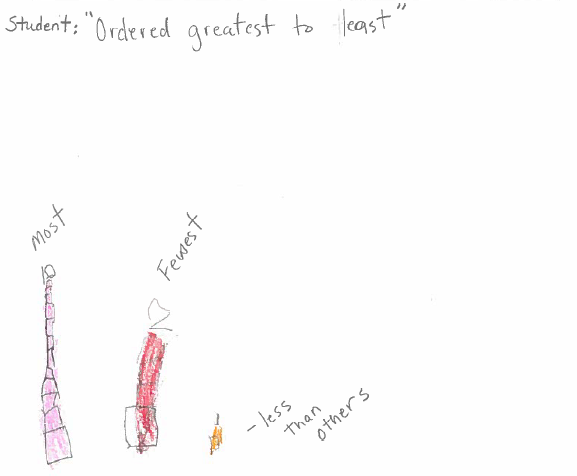 Student: "Ordered greatest to least"
Most
Fewest
- less
than
others